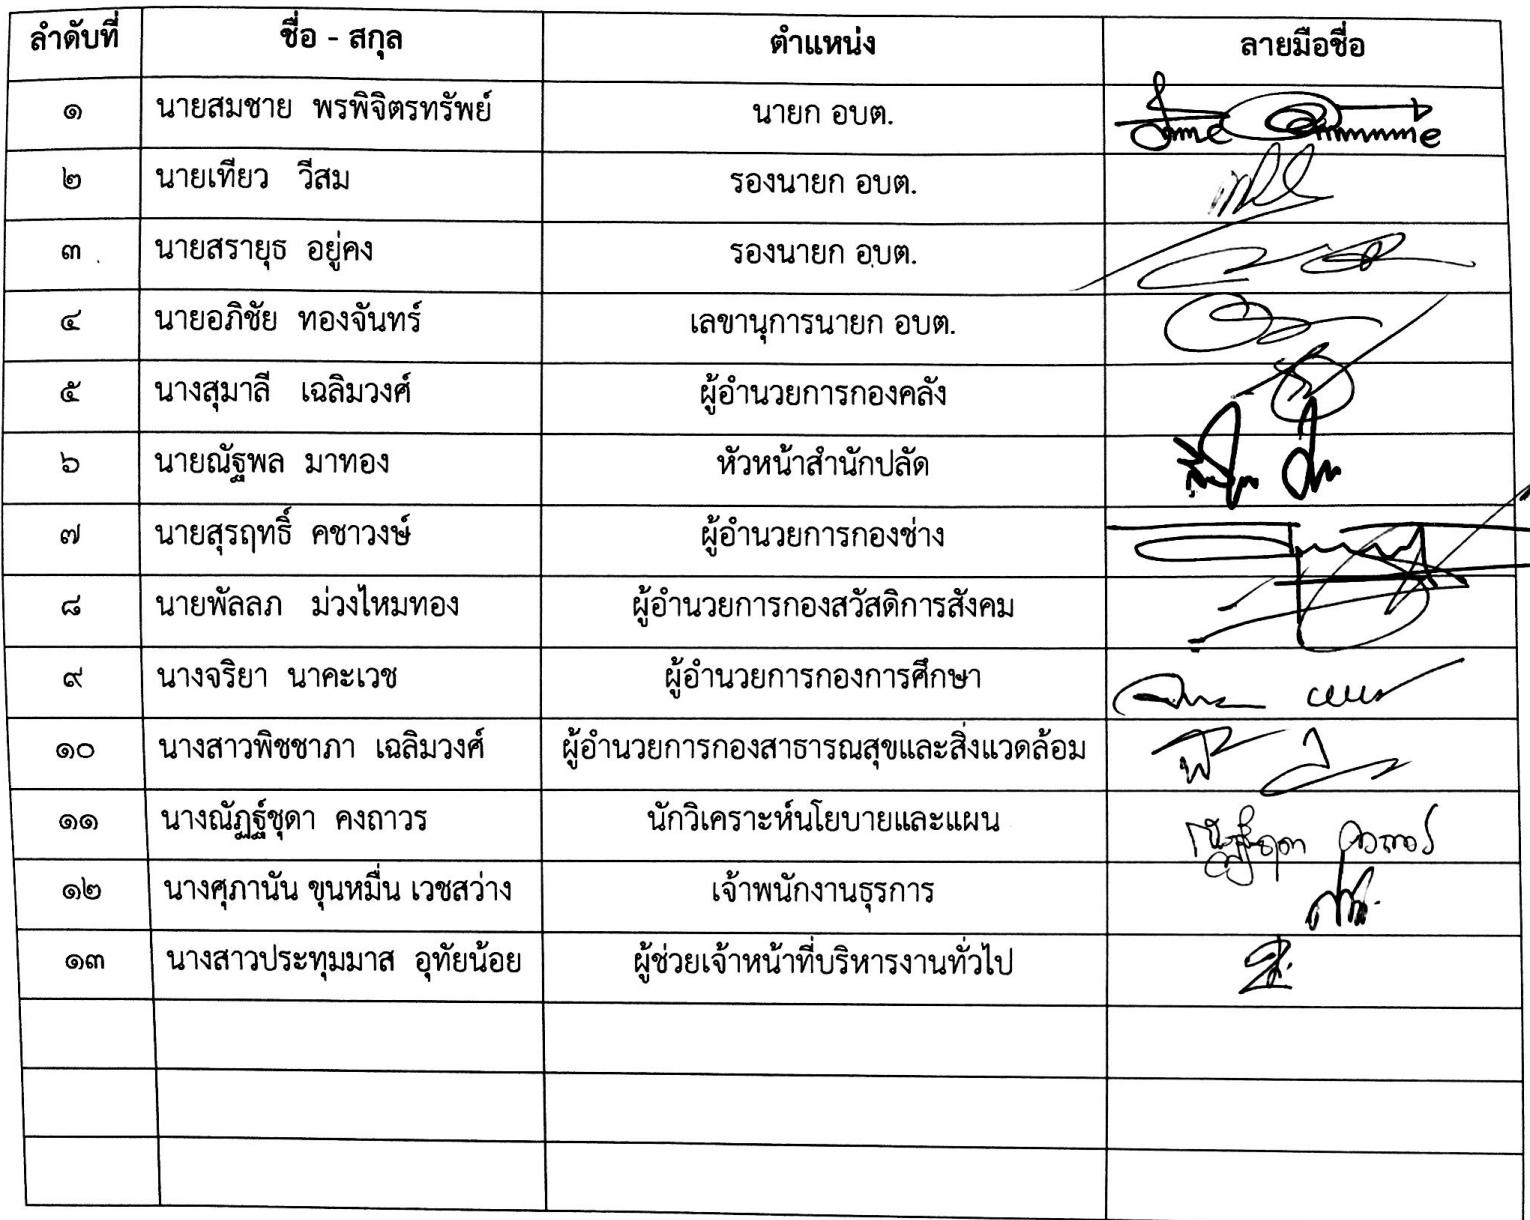 ลำดับที่ ชื่อ - สกุล ตำแหน่ง ลายมือชื่อ
๑ นายสมชาย พรพิจิตรทรัพย์ นายก อบต.
๒ นายเทียว วีสม รองนายก อบต.
๓ นายสรายุธ อยู่คง รองนายก อบต.
๔ นายอภิชัย ทองจันทร์ เลขานุการนายก อบต.
๕ นางสุมาลี เฉลิมวงศ์ ผู้อำนวยการกองคลัง
๖ นายณัฐพล มาทอง หัวหน้าสำนักปลัด
๗ นายสุรฤทธิ์ คชาวงษ์ ผู้อำนวยการกองช่าง
๘ นายพัลลภ ม่วงไหมทอง ผู้อำนวยการกองสวัสดิการสังคม
๙ นางจริยา นาคะเวช ผู้อำนวยการกองการศึกษา
๑๐ นางสาวพิชชาภา เฉลิมวงศ์ ผู้อำนวยการกองสาธารณสุขและสิ่งแวดล้อม
๑๑ นางณัฏฐ์ชุดา คงถาวร นักวิเคราะห์นโยบายและแผน
๑๒ นางศุภานัน ขุนหมื่น เวชสว่าง เจ้าพนักงานธุรการ
๑๓ นางสาวประทุมมาส อุทัยน้อย ผู้ช่วยเจ้าหน้าที่บริหารงานทั่วไป